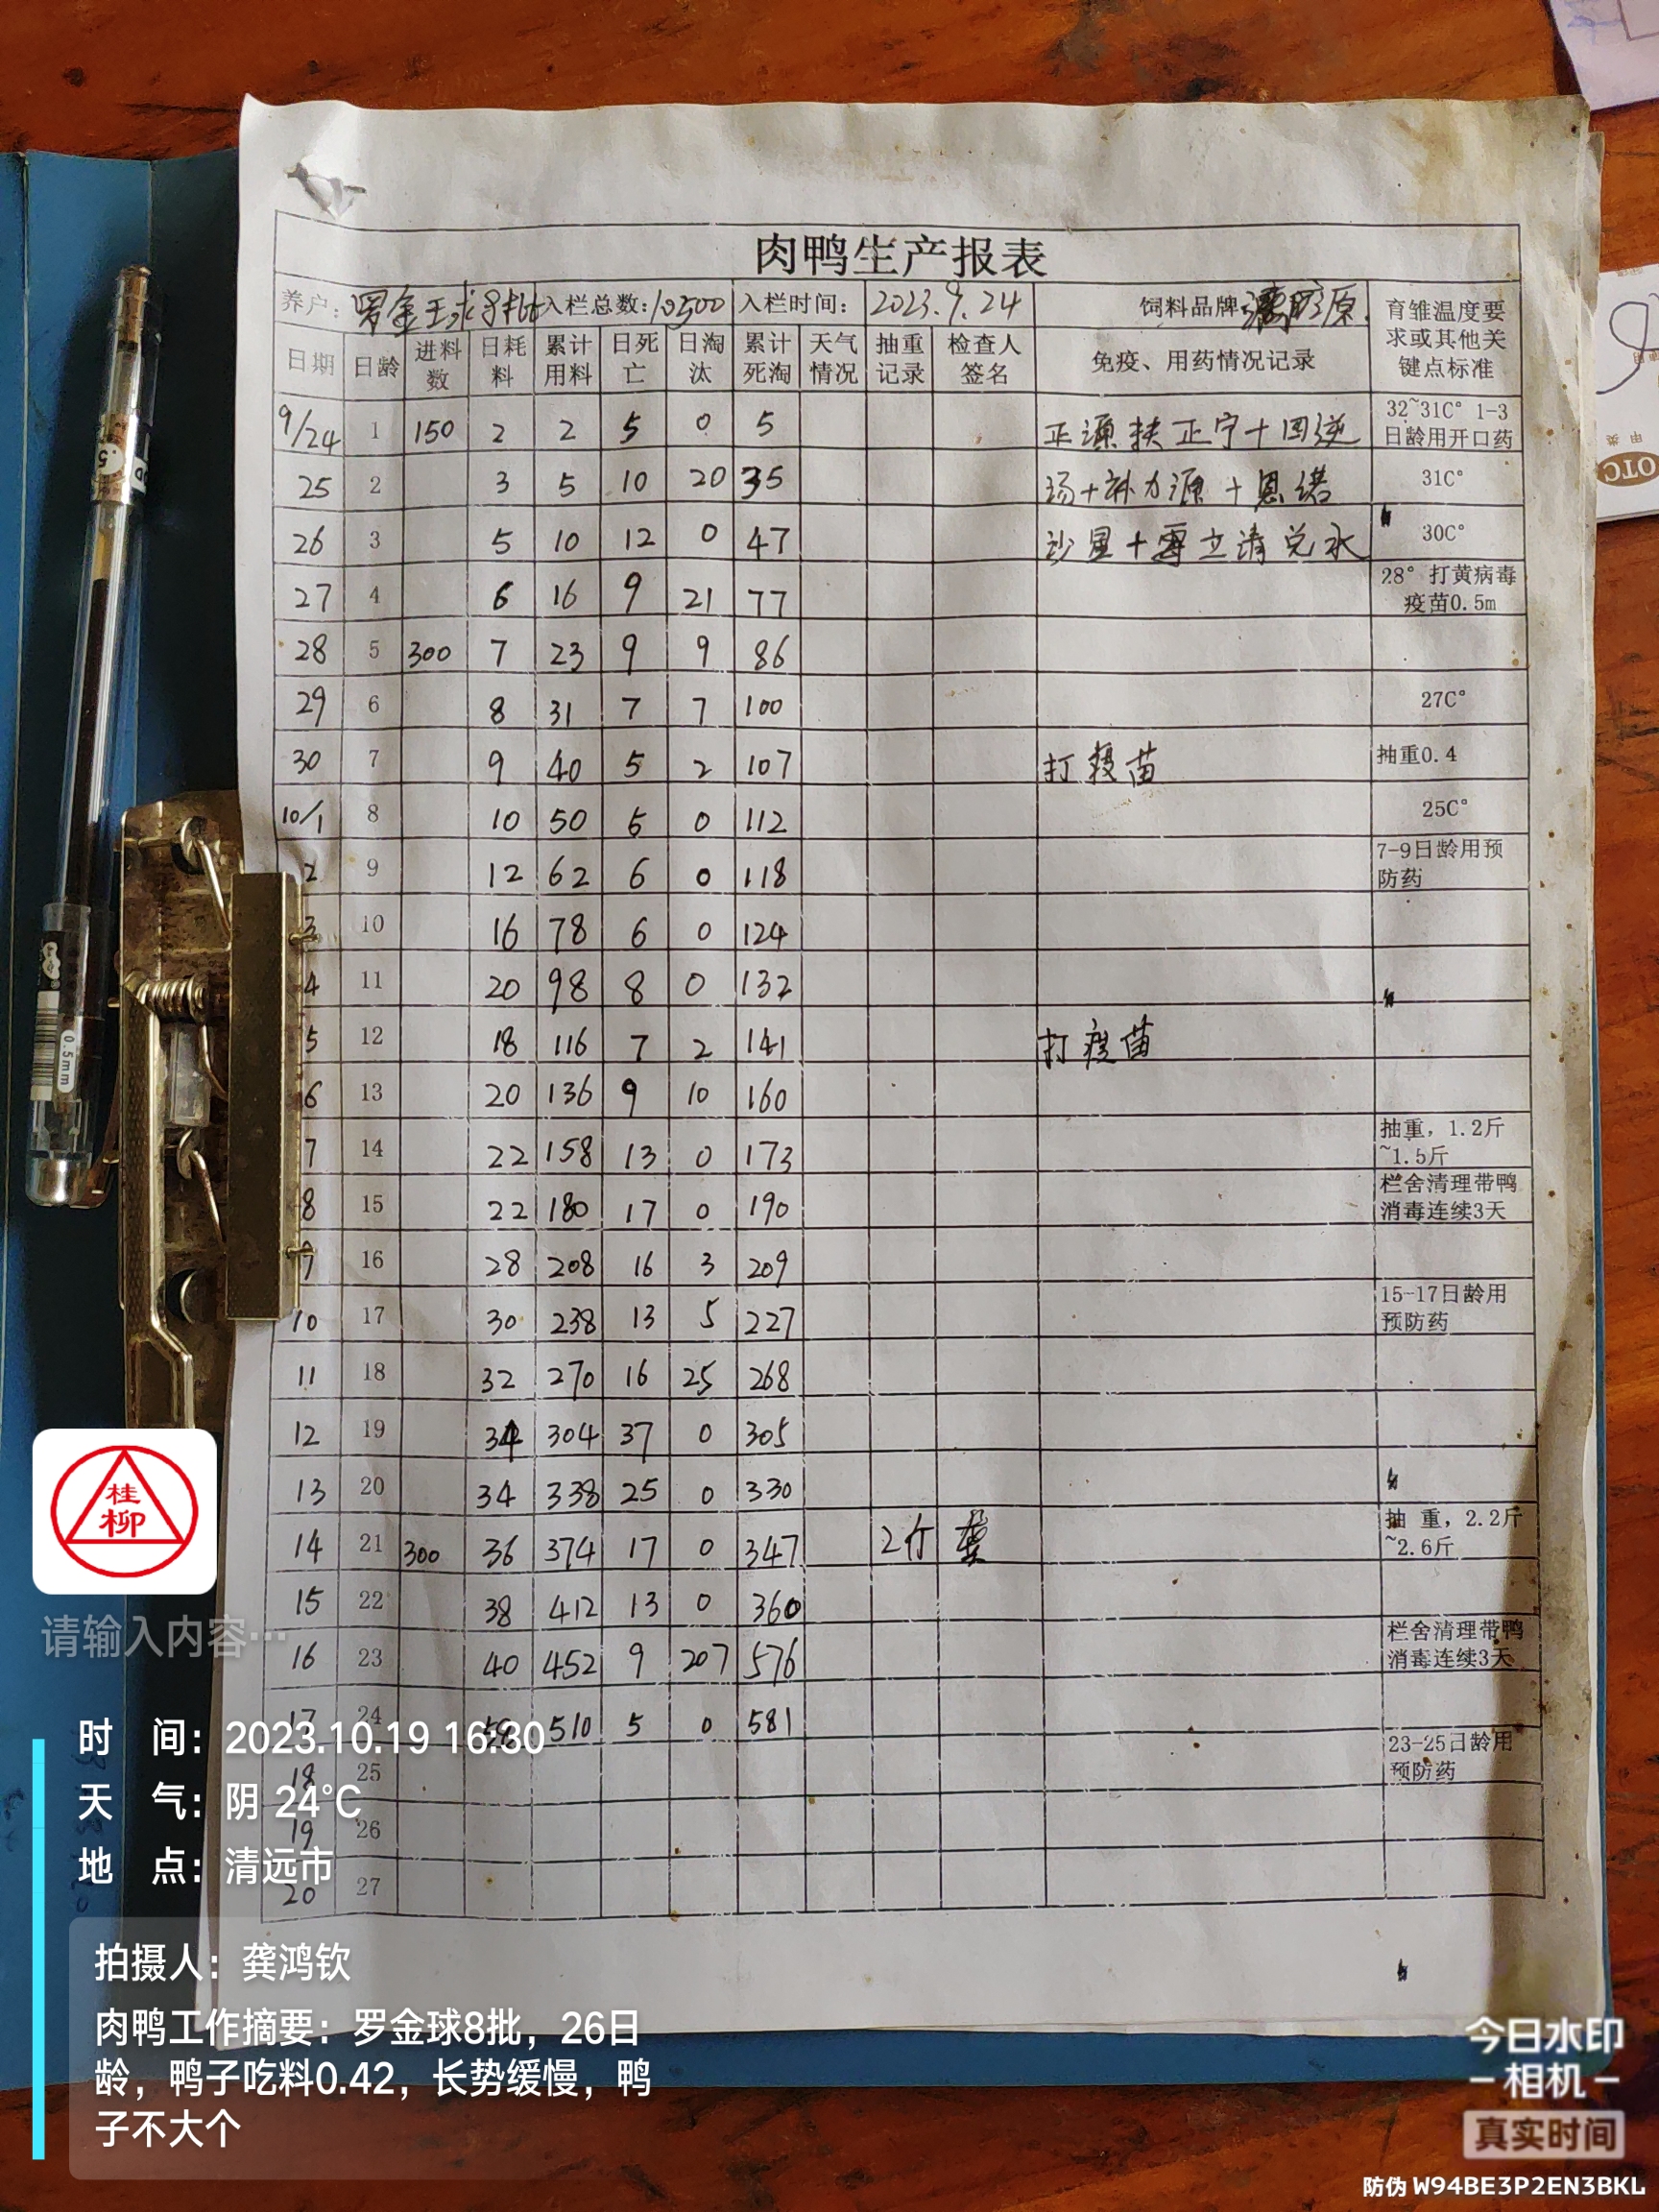 肉鸭生产报表
养户: 罗金球8批 入栏总数:10500 入栏时间: 2023.9.24 饲料品牌 育雏温度要求或其他关键点标准
日期 日龄 进料数 日耗料 累计用料 日死亡 日淘汰 累计死淘 天气情况 抽重记录 检查人签名 免疫、用药情况记录
9/24 1 150 2 2 5 0 5 正源扶正宁+四逆 32~31C° 1-3日龄用开口药
25 2 3 5 10 20 35 汤+补力源+恩诺 31C°
26 3 5 10 12 0 47 沙星+霉立清兑水 30C°
27 4 6 16 9 21 77 28° 打黄病毒疫苗0.5m
28 5 300 7 23 9 9 86
29 6 8 31 7 7 100 27C°
30 7 9 40 5 2 107 打疫苗 抽重0.4
10/1 8 10 50 5 0 112 25C°
2 9 12 62 6 0 118 7-9日龄用预防药
3 10 16 78 6 0 124
4 11 20 98 8 0 132
5 12 18 116 7 2 141 打疫苗
6 13 20 136 9 10 160
7 14 22 158 13 0 173 抽重，1.2斤~1.5斤
8 15 22 180 17 0 190 栏舍清理带鸭消毒连续3天
9 16 28 208 16 3 209
10 17 30 238 13 5 227 15-17日龄用预防药
11 18 32 270 16 25 268
12 19 34 304 37 0 305
13 20 34 338 25 0 330
14 21 300 36 374 17 0 347 2斤 龚 抽 重，2.2斤~2.6斤
15 22 38 412 13 0 360
16 23 40 452 9 207 576 栏舍清理带鸭消毒连续3天
17 24 510 5 0 581
18 25 23-25日龄用预防药
19 26
20 27
0.5mm
OTC
甲类
桂柳
请输入内容…
时 间：2023.10.19 16:30
天 气：阴 24°C
地 点：清远市
拍摄人：龚鸿钦
肉鸭工作摘要：罗金球8批，26日
龄，鸭子吃料0.42，长势缓慢，鸭
子不大个
今日水印
相机
真实时间
防伪 W94BE3P2EN3BKL